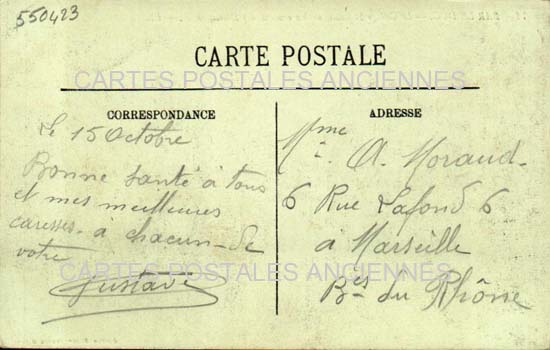 550423
CARTE POSTALE
CARTES POSTALES ANCIENNES
CORRESPONDANCE
ADRESSE
Le 15 Octobre
Bonne santé à tous
et mes meilleures
caresses à chacun de
votre
Gustave
Mme A. Moraud
6 Rue Lafond 6
à Marseille
Bes du Rhône
CARTES POSTALES ANCIENNES